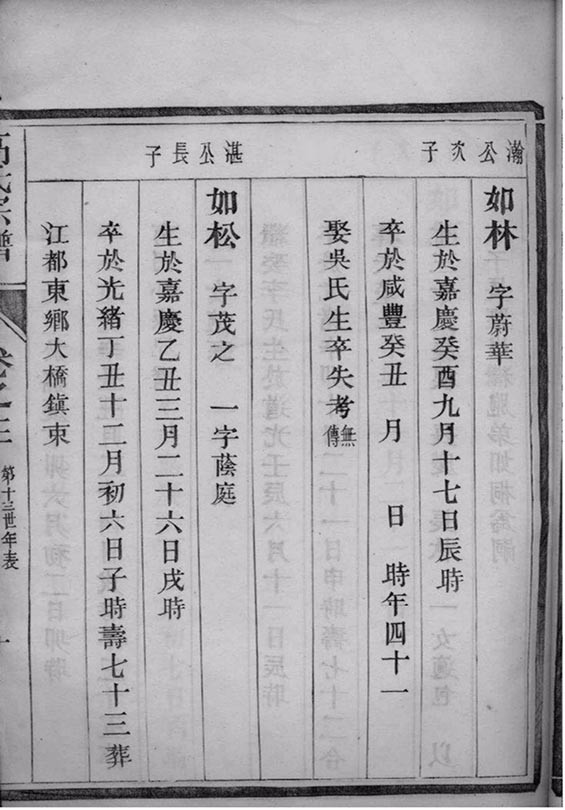 瀚公次子
如林 字蔚華
生於嘉慶癸酉九月十七日辰時
卒於咸豐癸丑 月 日 時年四十一
娶吳氏生卒失考無傳
湛公長子
如松 字茂之 一字蔭庭
生於嘉慶乙丑三月二十六日戌時
卒於光緒丁丑十二月初六日子時壽七十三葬
江都東鄉大橋鎮東
氏宗譜
卷之
第十三世年表